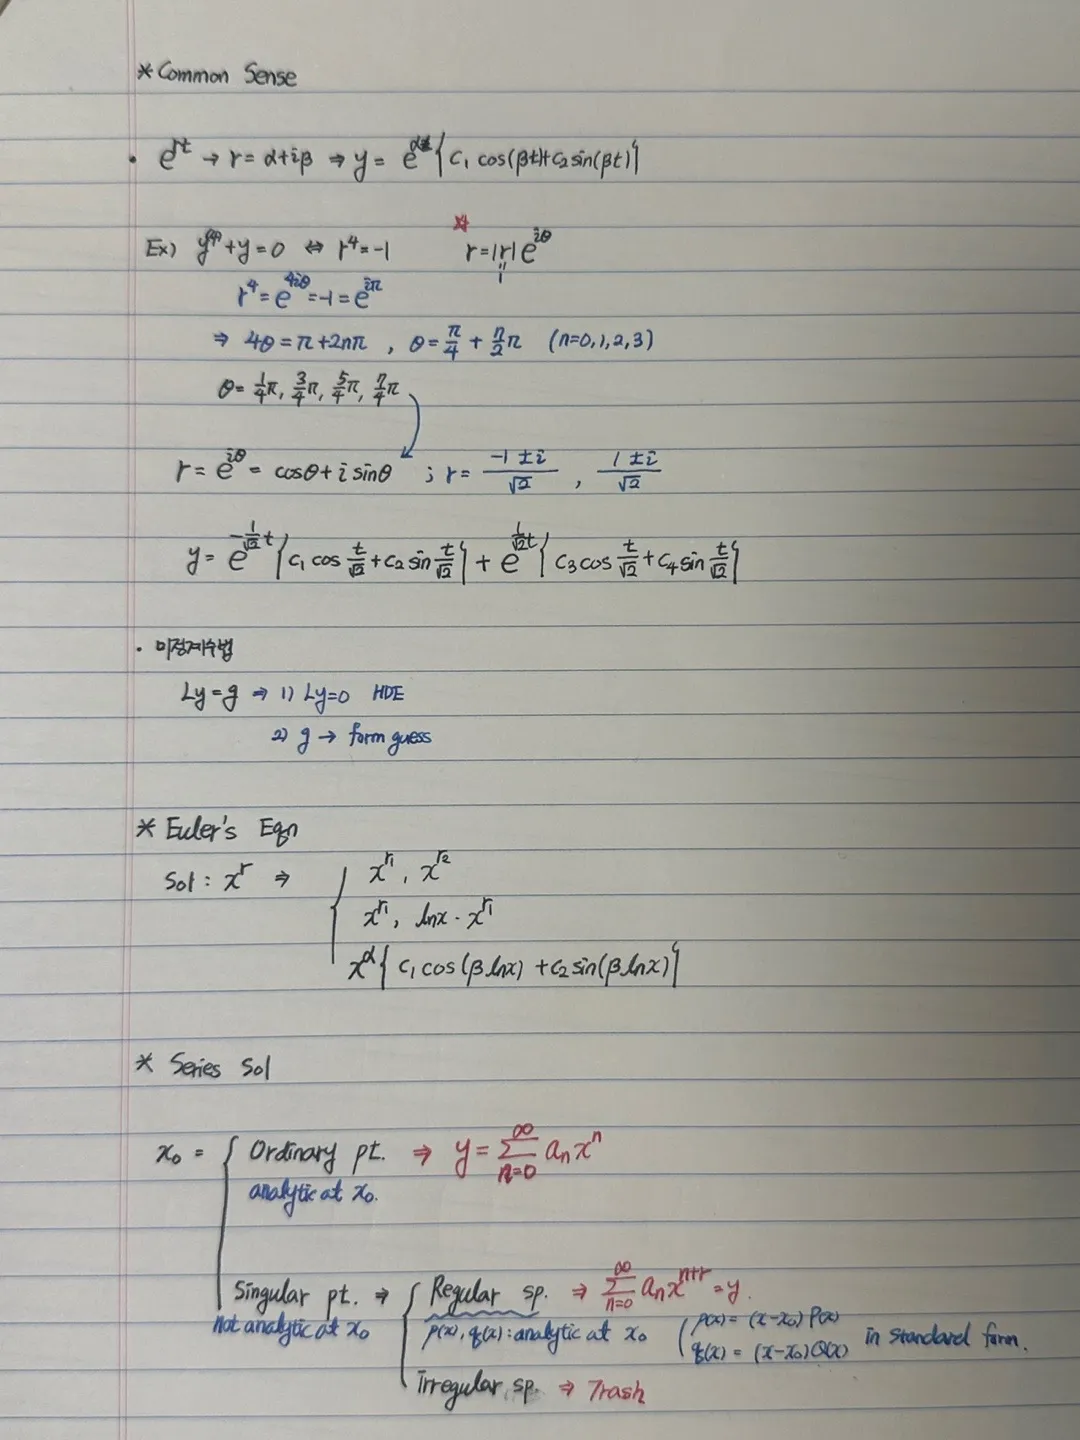 * Common Sense
• e^{rt} → r = α+iβ ⇒ y = e^{αt}{c₁ cos(βt)+c₂ sin(βt)}
Ex) y⁽⁴⁾+y=0 ⇔ r⁴=-1 ☆ r=|r|e^{iθ}
" 1
r⁴=e^{4iθ}=-1=e^{iπ}
⇒ 4θ=π+2nπ , θ=π/4 + n/2 π (n=0,1,2,3)
θ= 1/4 π, 3/4 π, 5/4 π, 7/4 π
r= e^{iθ} = cosθ+i sinθ ; r= (-1±i)/√2 , (1±i)/√2
y= e^{-1/√2 t}{c₁ cos t/√2 + c₂ sin t/√2} + e^{1/√2 t}{c₃ cos t/√2 + c₄ sin t/√2}
• 미정계수법
Ly=g ⇒ 1) Ly=0 HDE
2) g → form guess
* Euler's Eqn
Sol : x^r ⇒ { x^{r₁}, x^{r₂}
x^{r₁}, lnx · x^{r₁}
x^α{ c₁ cos(β lnx) + c₂ sin(β lnx)}
* Series Sol
x₀ = { Ordinary pt. ⇒ y= ∑_{n=0}^{∞} aₙxⁿ
analytic at x₀.
Singular pt. ⇒ { Regular sp. ⇒ ∑_{n=0}^{∞} aₙx^{n+r} = y.
Not analytic at x₀ p(x), q(x) : analytic at x₀ ( p(x) = (x-x₀) P(x)
q(x) = (x-x₀) Q(x) in standard form.
irregular sp. ⇒ Trash